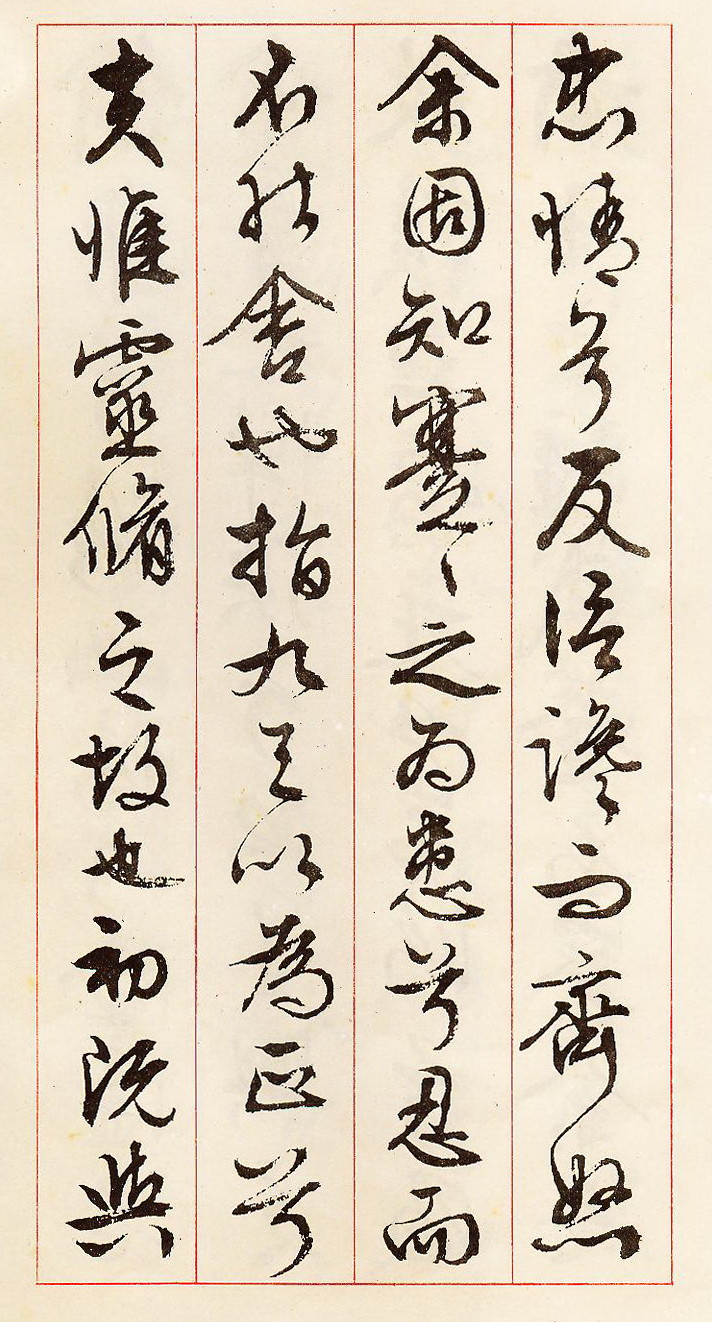 忠情兮反信讒而齊怒
余固知蹇々之為患兮忍而
不能舍也指九天以為正兮
夫惟靈脩之故也初既與